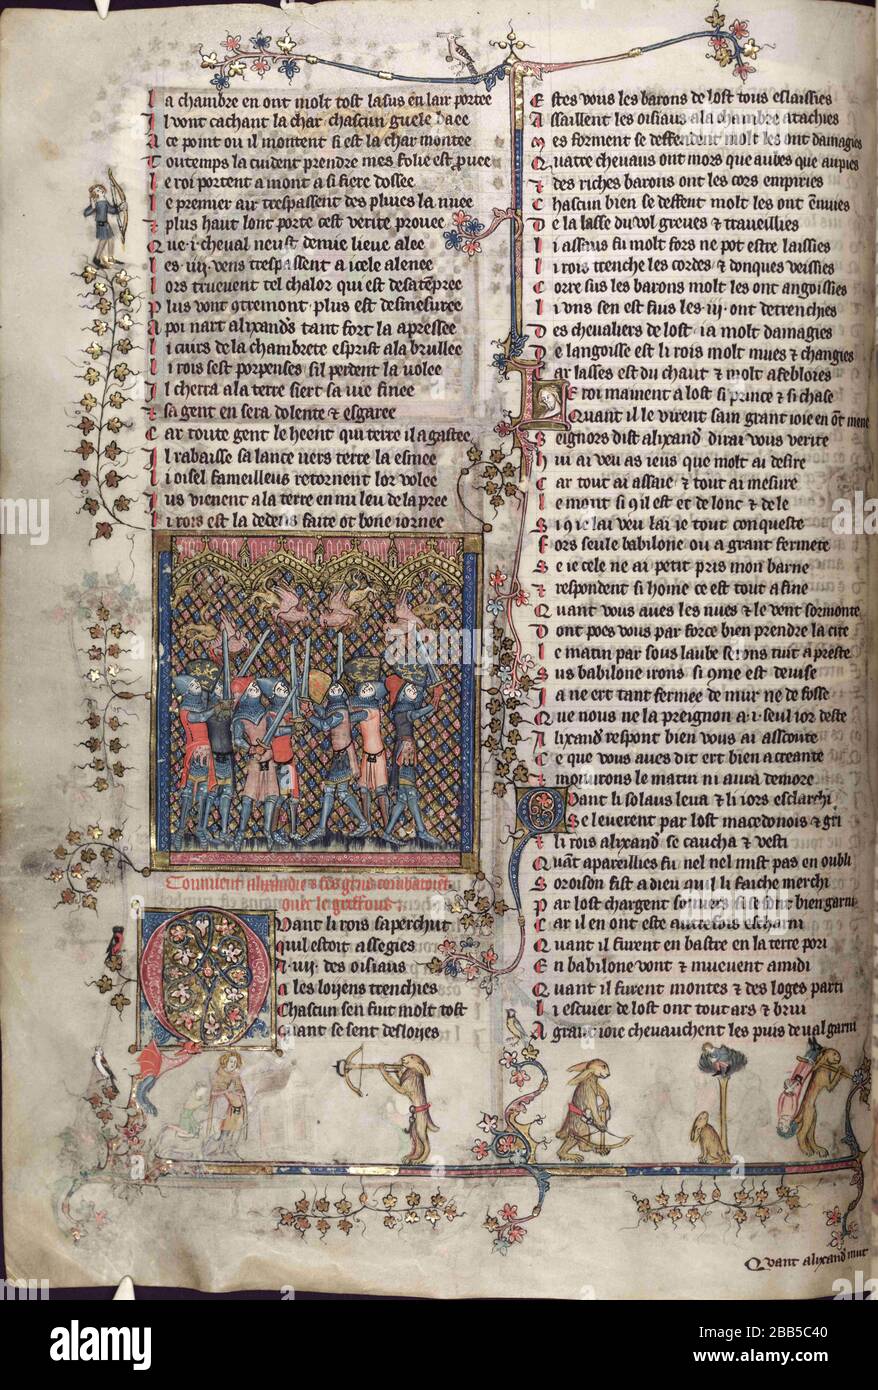 la chambre en ont molt tost lasus en lair portee
Il vont cachant la char chascun guele baee
A ce point ou il montent si est la char montee
Toutemps la cuident prendre mes folie est pruee
le roi portent amont a si fiere
le premier air trespassent des pluies la nuee
& plus haut lont porte cest verite prouee
Que .i. cheval neust demie lieue alee
les .iiii. vens trespassent a icele alenee
lors truevent tel chalor qui est desatepree
Plus vont gtremont plus est desmesuree
A poi nart alixands tant fort la apressee
li cuirs de la chambrete esprist a la brullee
li rois sest porpenses sil perdent la volee
Il cherra a la terre siert sa vie finee
& sa gent en sera dolente & esgaree
Car toute gent le heent qui terre il a gastee
Il rabaisse sa lance vers terre la esmee
li oisel fameilleus retornent lor volee
Jus vienent a la terre en mi leu de la pree
li rois est la dedens faite ot bone iornee
Comment alixandre & ses gens combatoient
outer le greffons
Quant li rois saperchut
quil estoit assegies
A .iiii. des oisiaus
a les loijens trenchies
Chascun sen fuit molt tost
quant se sent desloijes
Estes vous les barons de lost tous eslaissies
Assaillent les oisiaus a la chambre atachies
Mes forment se deffendent molt les ont damagies
Quatre chevaus ont mors que aubes que aupies
& des riches barons ont les cors empiries
Chascun bien se deffent molt les ont
De la lasse du vol greves & traveillies
li assaus fu molt fors ne pot estre laissies
li rois trenche les cordes & donques veissies
Corre sus les barons molt les ont angoissies
li uns sen est fuis les .iii. ont detrenchies
Des chevaliers de lost ia molt damagies
De langoisse est li rois molt mues & changies
Car lasses est du chaut & molt afeblores
Le roi mainent a lost si prince & si chase
Quant il le virent sain grant ioie en ont mene
Seignors dist alixand dirai vous verite
hui ai veu as ieus que molt ai desire
Car tout ai assaie & tout ai mesure
le mont si gil est et de lonc & de le
Si ge lai veu lai ie tout conqueste
fors seule babilone ou a grant fermete
Se ie cele ne ai petit pris mon barne
& respondent si home ce est tout a fine
Quant vous aves les nues & le vent sormonte
Dont poes vous par force bien prendre la cite
le matin par sous laube serons tuit apreste
Sus babilone irons si gme est devise
Ja ne ert tant fermee de mur ne de fosse
Que nous ne la preignon a .i. seul ior deste
Alixand respont bien vous ai asconte
Ce que vous aves dit ert bien acreante
& mouvrons le matin ni aura demore
Quant li solaus leva & li iors esclarchi
Se leverent par lost macedonois & gri
& li rois alixand se caucha & vesti
Quant apareillies fu nel nel mist pas en oubli
Soroison fist a dieu qui li faiche merchi
Par lost chargent somiers si sont bien garni
Car il en ont este autrefois escharni
Quant il furent en bastre en la terre pori
En babilone vont & muevent amidi
Quant il furent montes & des loges parti
li escuier de lost ont tout ars & brui
A grant ioie chevauchent les puis de val garni
Quant alixand mut
alamy
Image ID: 2BB5C40
www.alamy.com